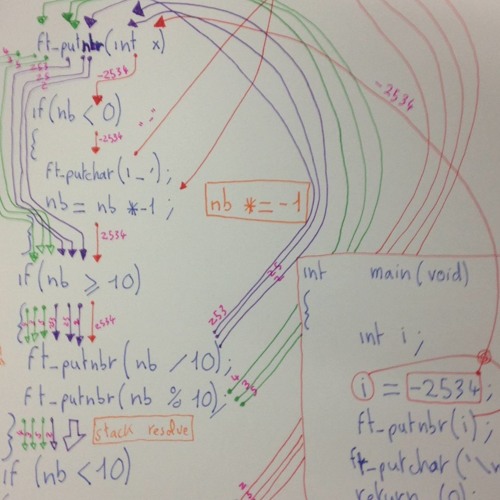 ft_putnbr(int x)
-2534
if(nb < 0)
{
-2534
ft_putchar('-');
nb = nb *-1;
nb *= -1
2534
}
if(nb ≥ 10)
{
2534
253
ft_putnbr(nb /10);
ft_putnbr(nb % 10);
}
stack resolve
if (nb <10)
-2534
int main(void)
{
int i;
i = -2534;
ft_putnbr(i);
ft_putchar('\n
return (0);